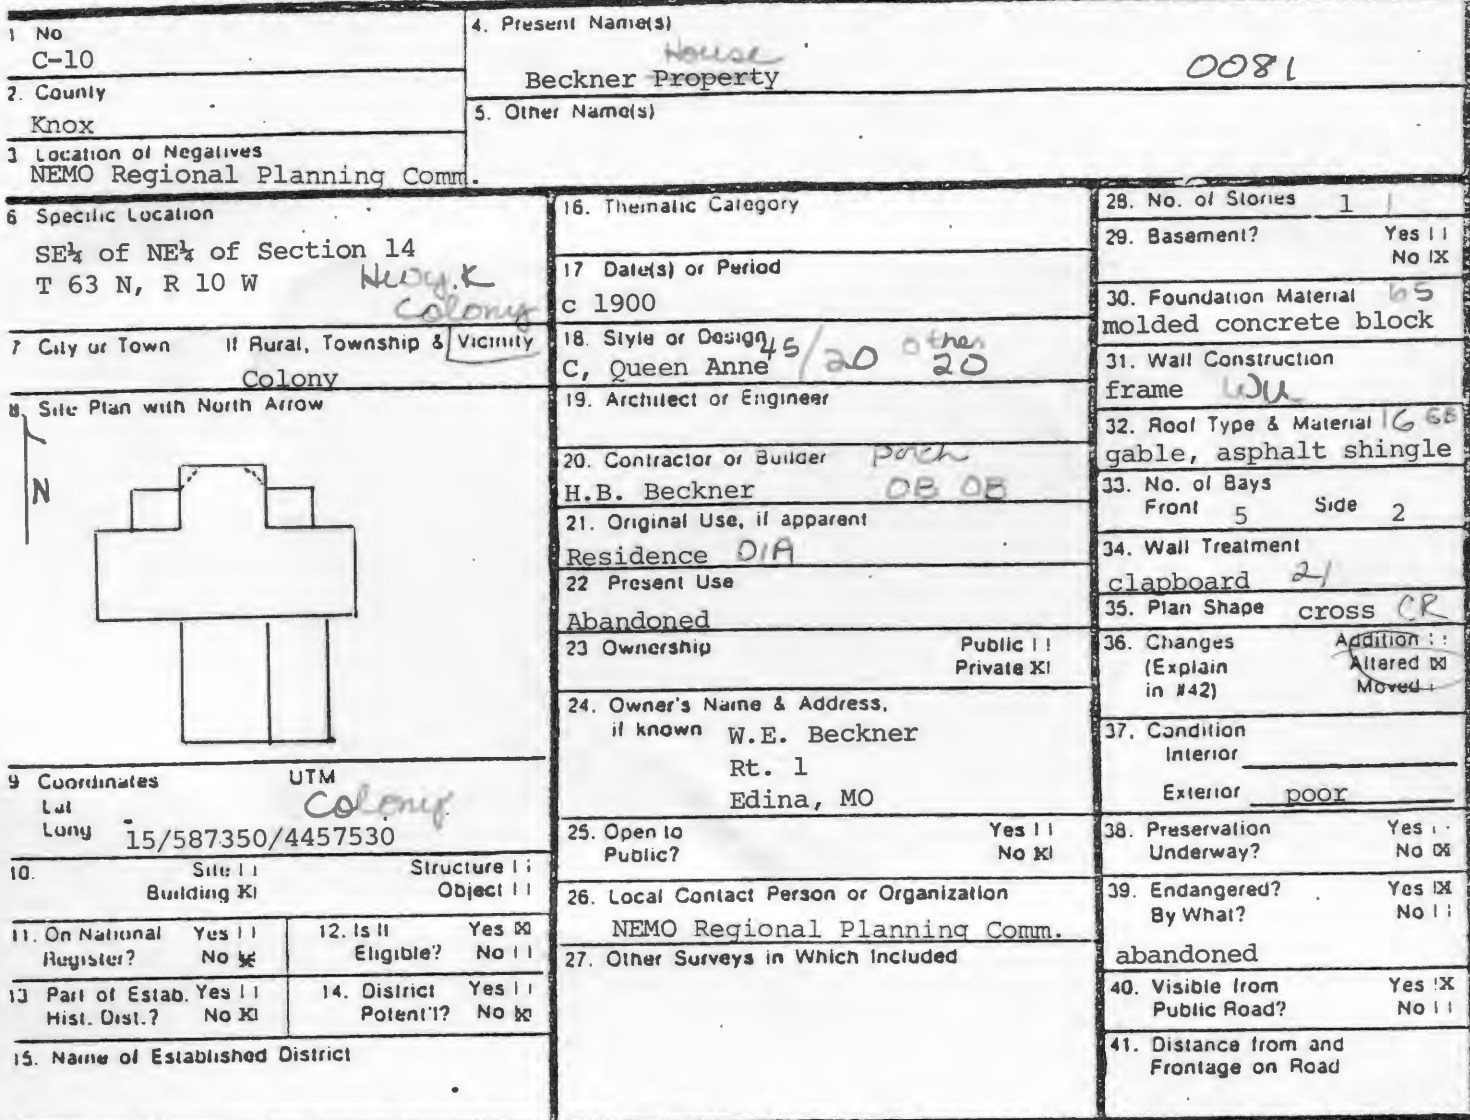 1 No
C-10
2. County
Knox
3 Location of Negatives
NEMO Regional Planning Comm.
4. Present Name(s)
House
Beckner Property
0081
5. Other Name(s)
6 Specific Location
SE¼ of NE¼ of Section 14
T 63 N, R 10 W
Hwy. K
Colony
7 City or Town If Rural, Township & Vicinity
Colony
8. Site Plan with North Arrow
N
9 Coordinates UTM
Lat
Colony
Long 15/587350/4457530
10. Site | | Structure | |
Building X| Object | |
11. On National Yes | |
Register? No X
12. Is It Yes X
Eligible? No | |
13 Part of Estab. Yes | |
Hist. Dist.? No X|
14. District Yes | |
Potent'l? No X
15. Name of Established District
16. Thematic Category
17 Date(s) or Period
c 1900
18. Style or Design 45/20 other 20
C, Queen Anne
19. Architect or Engineer
20. Contractor or Builder porch
H.B. Beckner OB OB
21. Original Use, if apparent
Residence 01A
22 Present Use
Abandoned
23 Ownership Public | |
Private X|
24. Owner's Name & Address,
if known W.E. Beckner
Rt. 1
Edina, MO
25. Open to Yes | |
Public? No X|
26. Local Contact Person or Organization
NEMO Regional Planning Comm.
27. Other Surveys in Which Included
28. No. of Stories 1
29. Basement? Yes | |
No |X
30. Foundation Material 65
molded concrete block
31. Wall Construction
frame WU
32. Roof Type & Material
gable, asphalt shingle
33. No. of Bays
Front 5 Side 2
34. Wall Treatment
clapboard 21
35. Plan Shape cross CR
36. Changes Addition | |
(Explain Altered X
in #42) Moved |
37. Condition
Interior
Exterior poor
38. Preservation Yes | |
Underway? No X
39. Endangered? Yes X
By What? No | |
abandoned
40. Visible from Yes X
Public Road? No | |
41. Distance from and
Frontage on Road